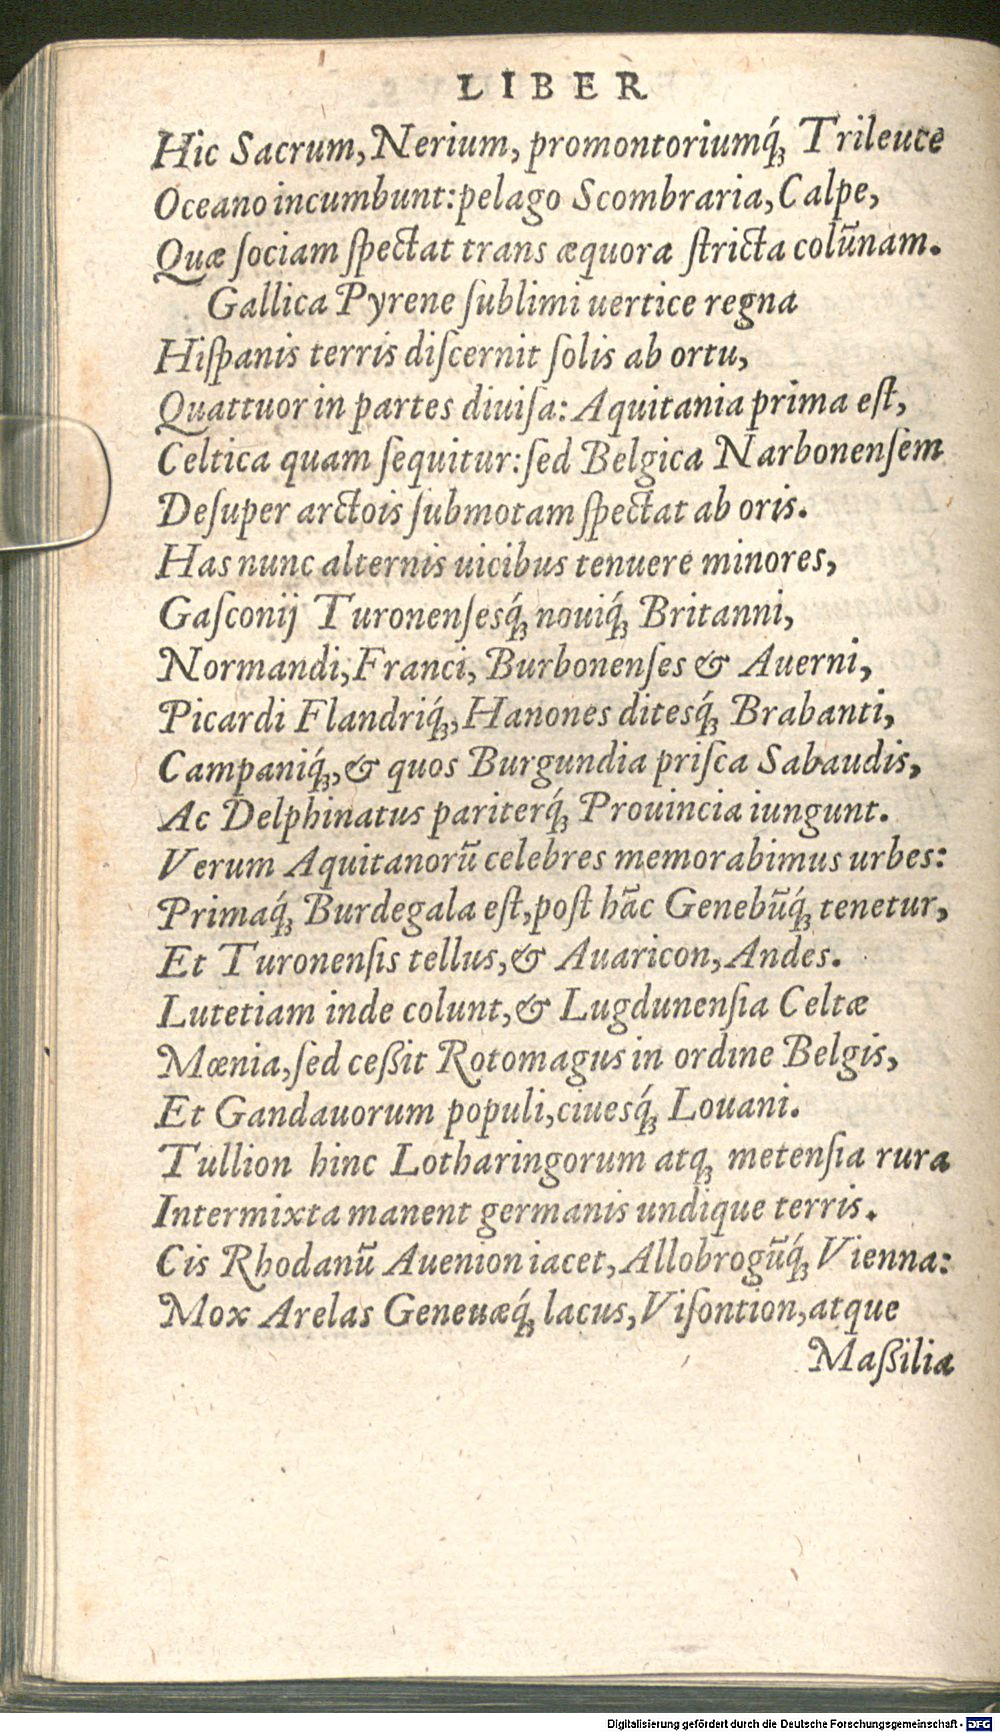 LIBER
Hic Sacrum, Nerium, promontoriumq́ꝫ Trileuce
Oceano incumbunt: pelago Scombraria, Calpe,
Quæ ſociam ſpectat trans æquora ſtricta colũnam.
Gallica Pyrene ſublimi uertice regna
Hiſpanis terris diſcernit ſolis ab ortu,
Quattuor in partes diuiſa: Aquitania prima eſt,
Celtica quam ſequitur: ſed Belgica Narbonenſem
Deſuper arctois ſubmotam ſpectat ab oris.
Has nunc alternis uicibus tenuere minores,
Gaſconij Turonenſesq́ꝫ nouiq́ꝫ Britanni,
Normandi, Franci, Burbonenſes & Auerni,
Picardi Flandriq́ꝫ, Hanones ditesq́ꝫ Brabanti,
Campaniq́ꝫ, & quos Burgundia priſca Sabaudis,
Ac Delphinatus pariterq́ꝫ Prouincia iungunt.
Verum Aquitanorũ celebres memorabimus urbes:
Primaq́ꝫ Burdegala eſt, poſt hãc Genebũq́ꝫ tenetur,
Et Turonenſis tellus, & Auaricon, Andes.
Lutetiam inde colunt, & Lugdunenſia Celtæ
Mœnia, ſed ceßit Rotomagus in ordine Belgis,
Et Gandauorum populi, ciuesq́ꝫ Louani.
Tullion hinc Lotharingorum atqꝫ metenſia rura
Intermixta manent germanis undique terris.
Cis Rhodanũ Auenion iacet, Allobrogũq́ꝫ Vienna:
Mox Arelas Geneuæq́ꝫ lacus, Viſontion, atque
Maßilia
Digitalisierung gefördert durch die Deutsche Forschungsgemeinschaft - DFG